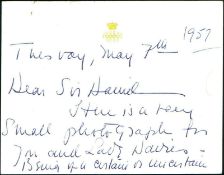 1957
Tuesday, May 7th
Dear Sir Daniel
Here is a very
Small photograph for
you and Lady Davies -
Being of a certain or uncertain